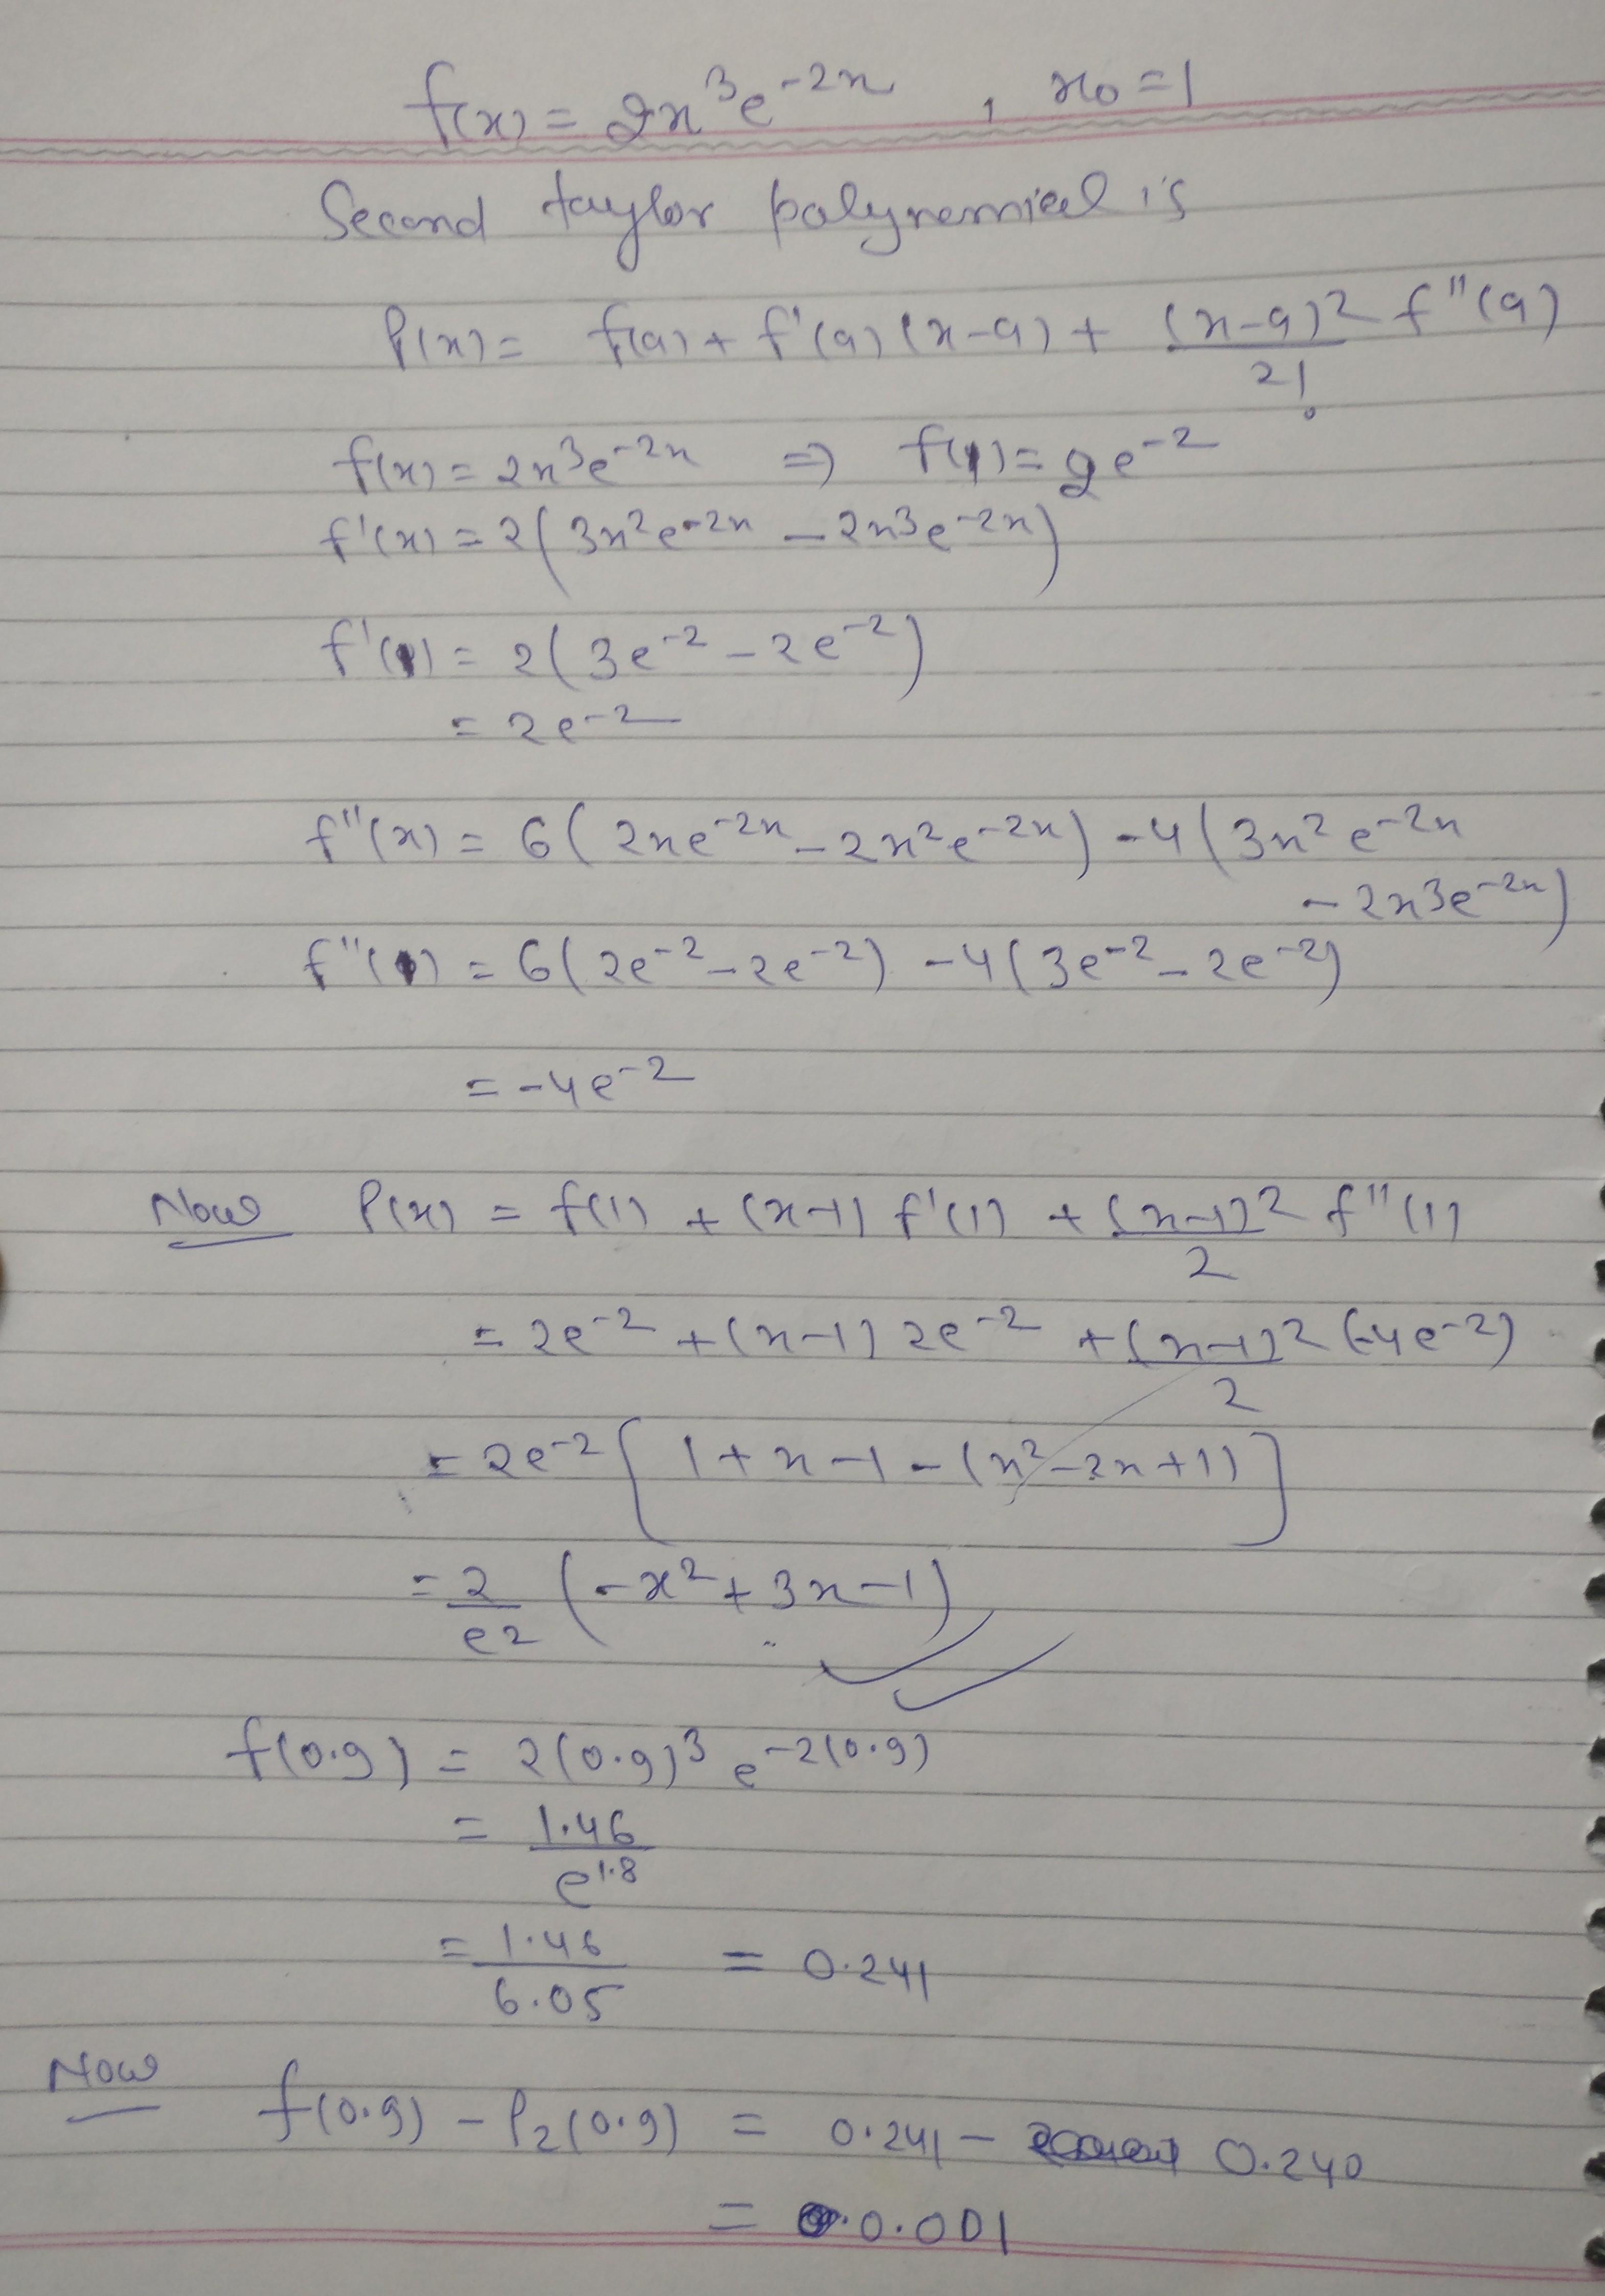 f(x) = 2x³e⁻²ˣ , x₀ = 1
Second taylor polynomial is
P(x) = f(a) + f'(a) (x-a) + (x-a)²/2! f''(a)
f(x) = 2x³e⁻²ˣ ⇒ f(1) = 2e⁻²
f'(x) = 2(3x²e⁻²ˣ - 2x³e⁻²ˣ)
f'(1) = 2(3e⁻² - 2e⁻²)
= 2e⁻²
f''(x) = 6(2xe⁻²ˣ - 2x²e⁻²ˣ) - 4(3x²e⁻²ˣ
- 2x³e⁻²ˣ)
f''(1) = 6(2e⁻² - 2e⁻²) - 4(3e⁻² - 2e⁻²)
= -4e⁻²
Now P(x) = f(1) + (x-1) f'(1) + (x-1)²/2 f''(1)
= 2e⁻² + (x-1) 2e⁻² + (x-1)²/2 (-4e⁻²)
= 2e⁻² [1 + x - 1 - (x² - 2x + 1)]
= 2/e² (-x² + 3x - 1)
f(0.9) = 2(0.9)³ e⁻²⁽⁰·⁹⁾
= 1.46/e¹·⁸
= 1.46/6.05 = 0.241
Now f(0.9) - P₂(0.9) = 0.241 - 0.240
= 0.001